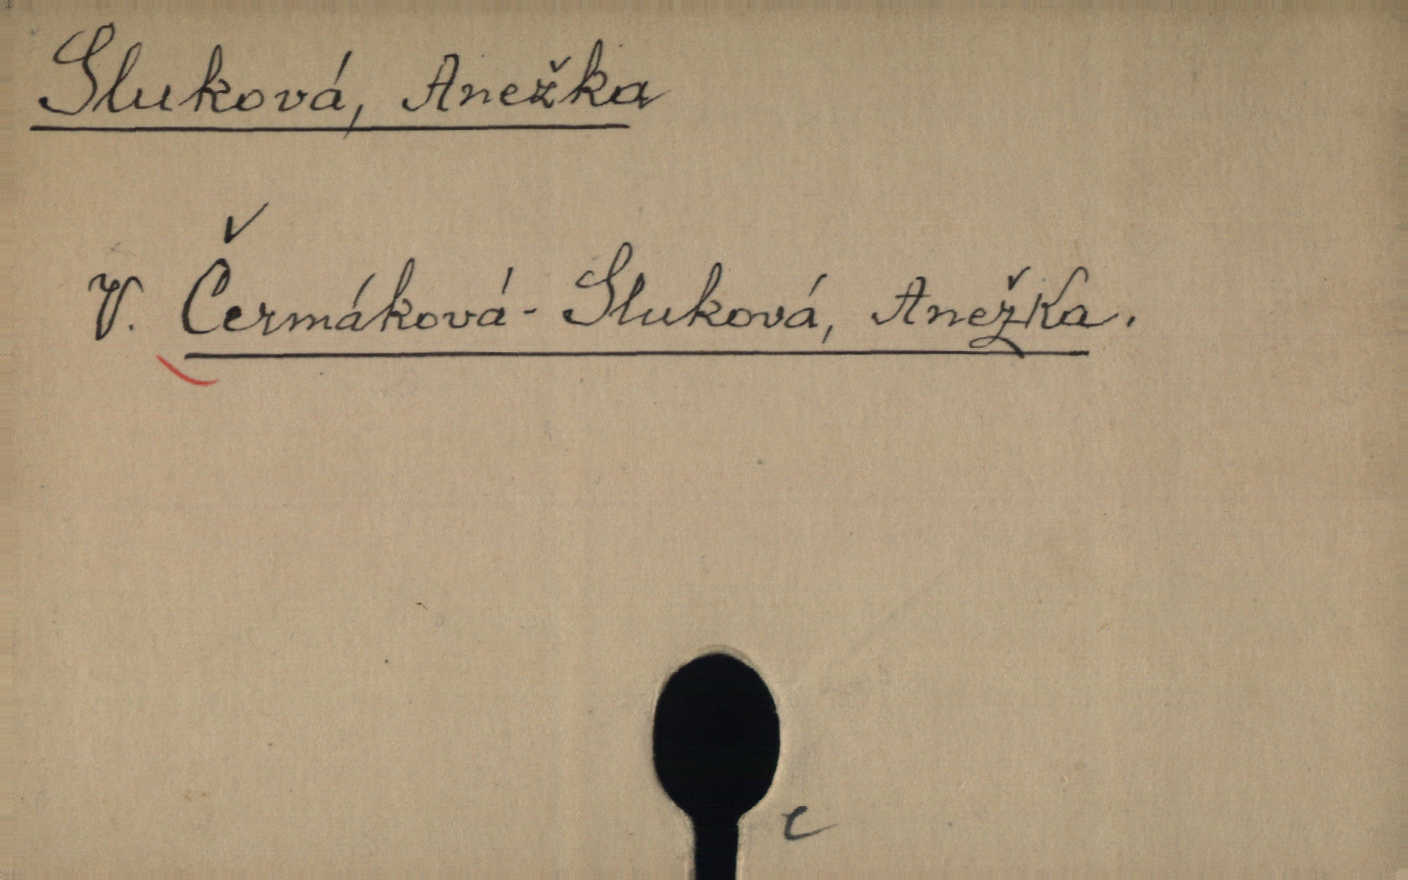 Sluková, Anežka
V. Čermáková-Sluková, Anežka.
c